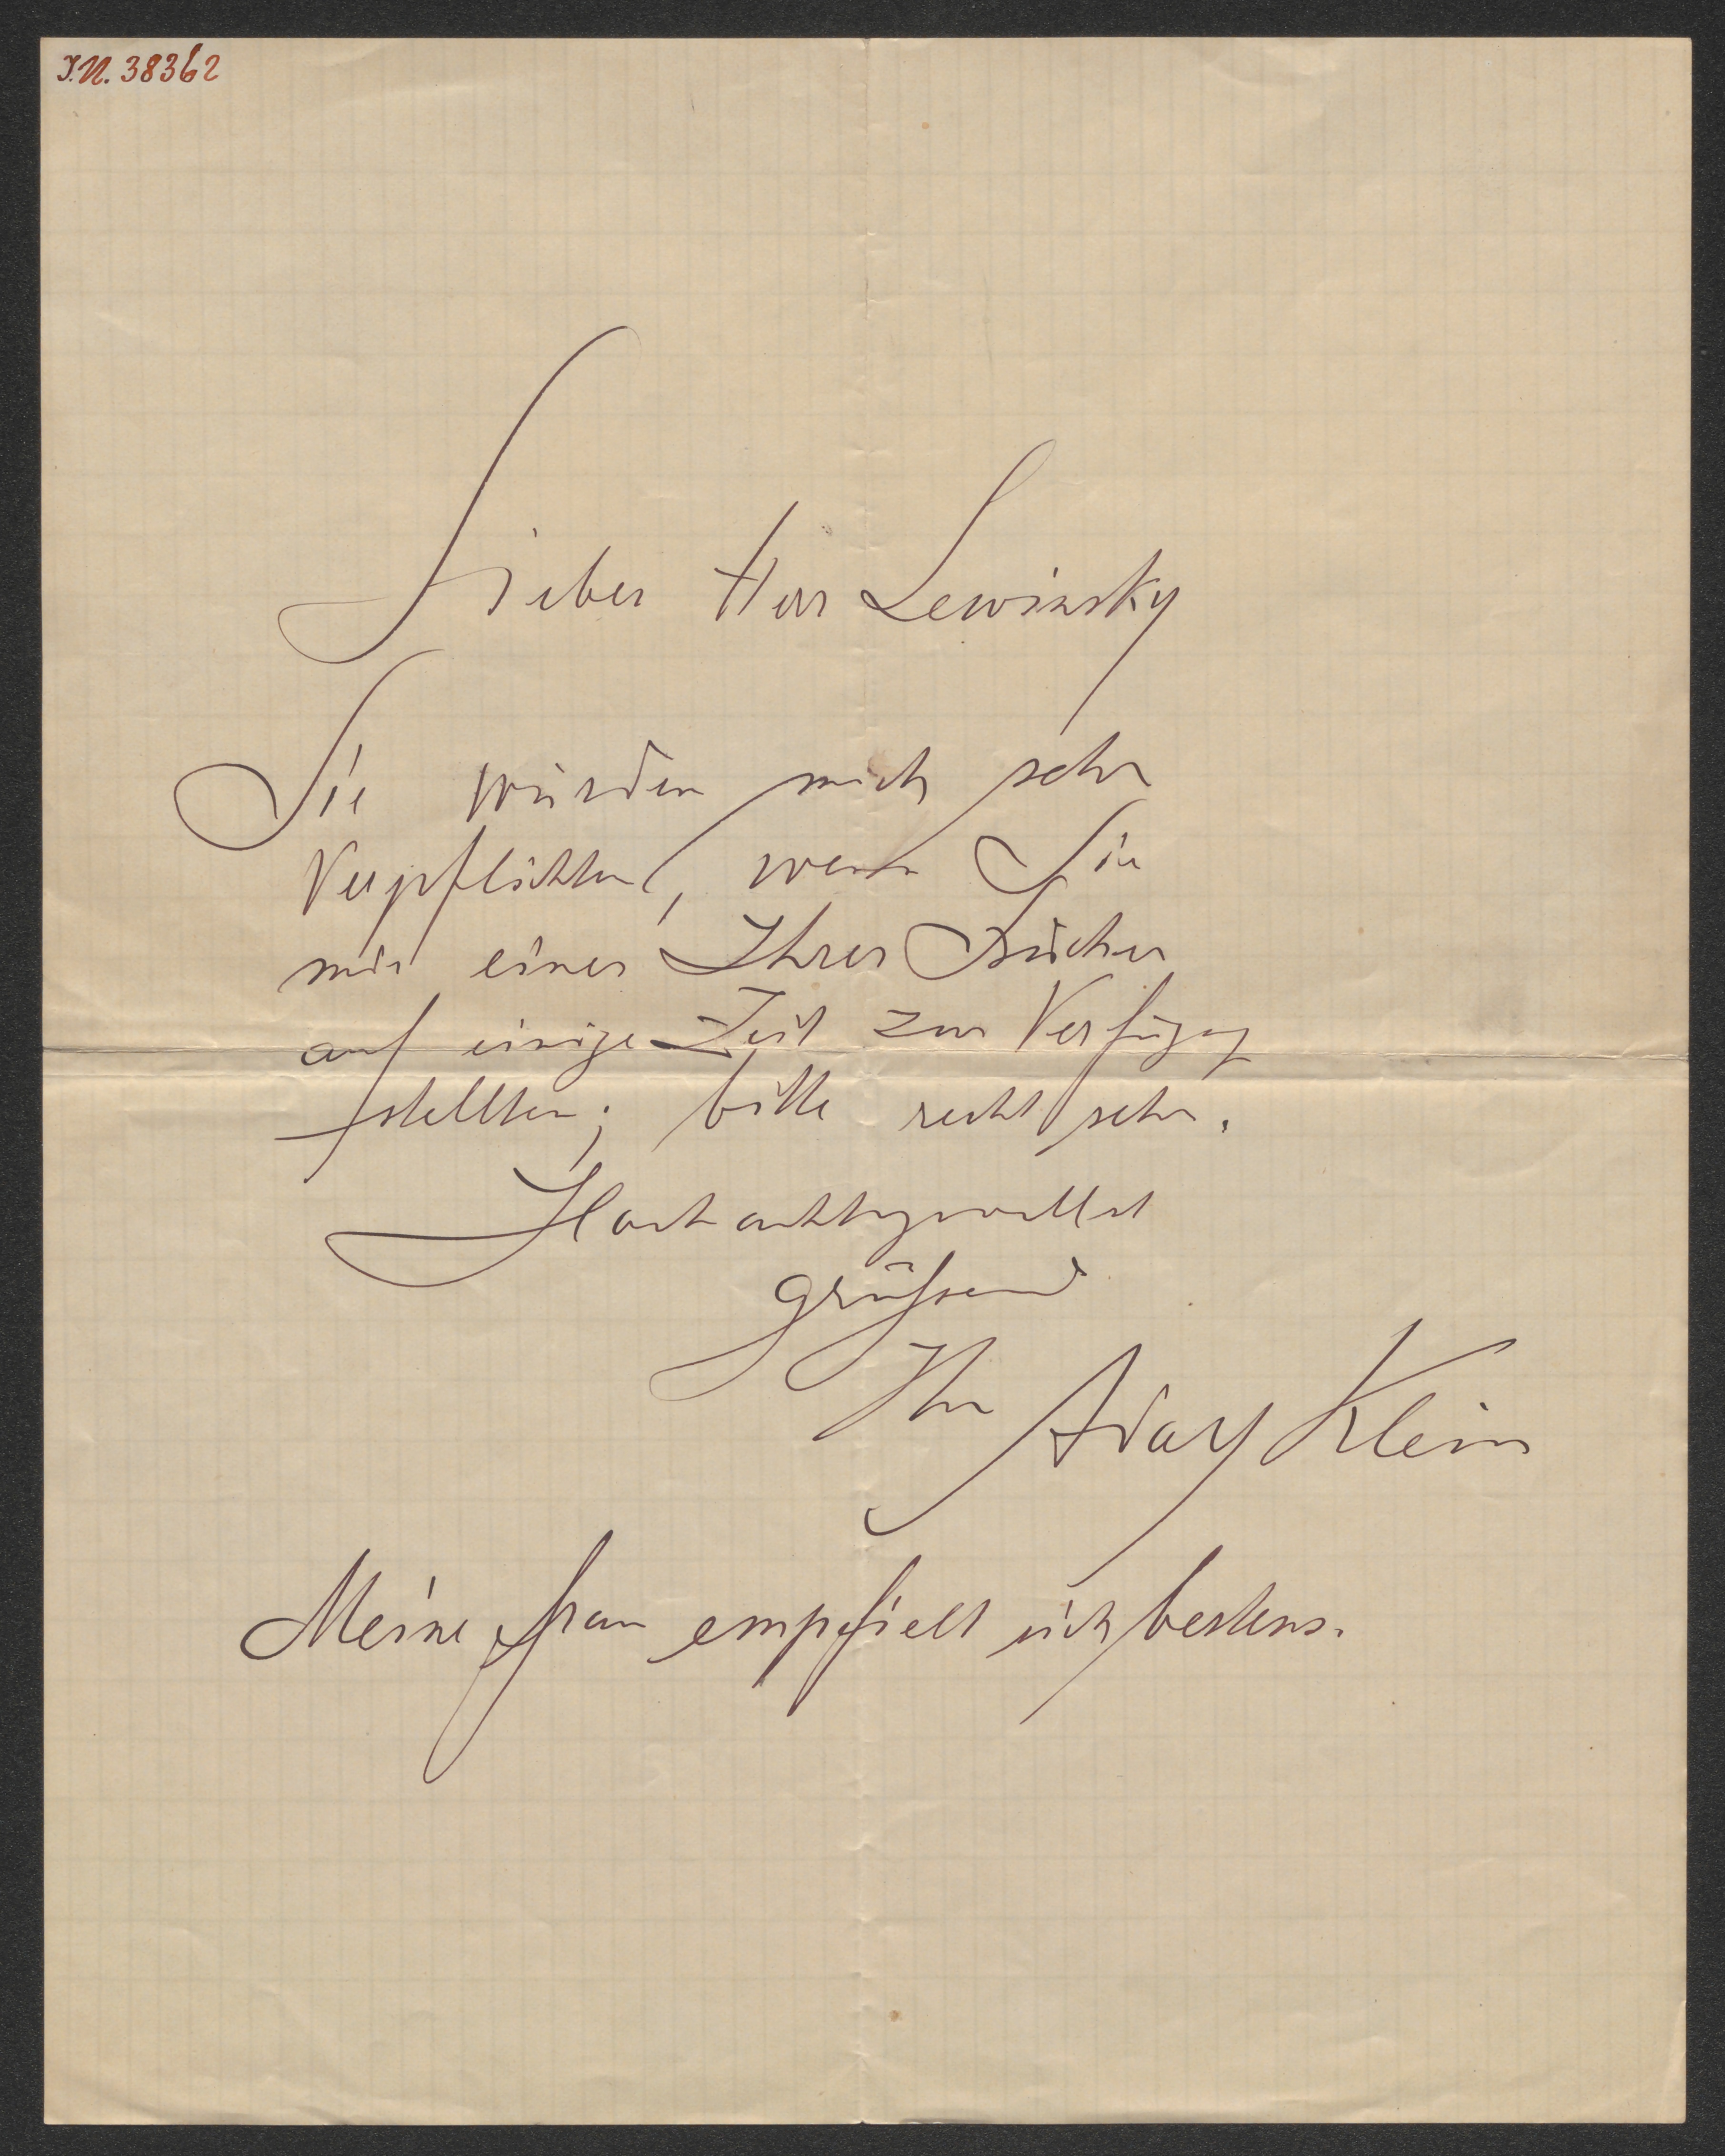 I.N. 38362
Lieber Herr Lewinsky
Sie würden mich sehr
Verpflichten, wenn Sie
mir eines Ihrer Bücher
auf einige Zeit zur Verfügung
stellten; bitte recht sehr.
Hochachtungsvollst
grüßend
Ihr Klein
Meine Frau empfielt sich bestens.